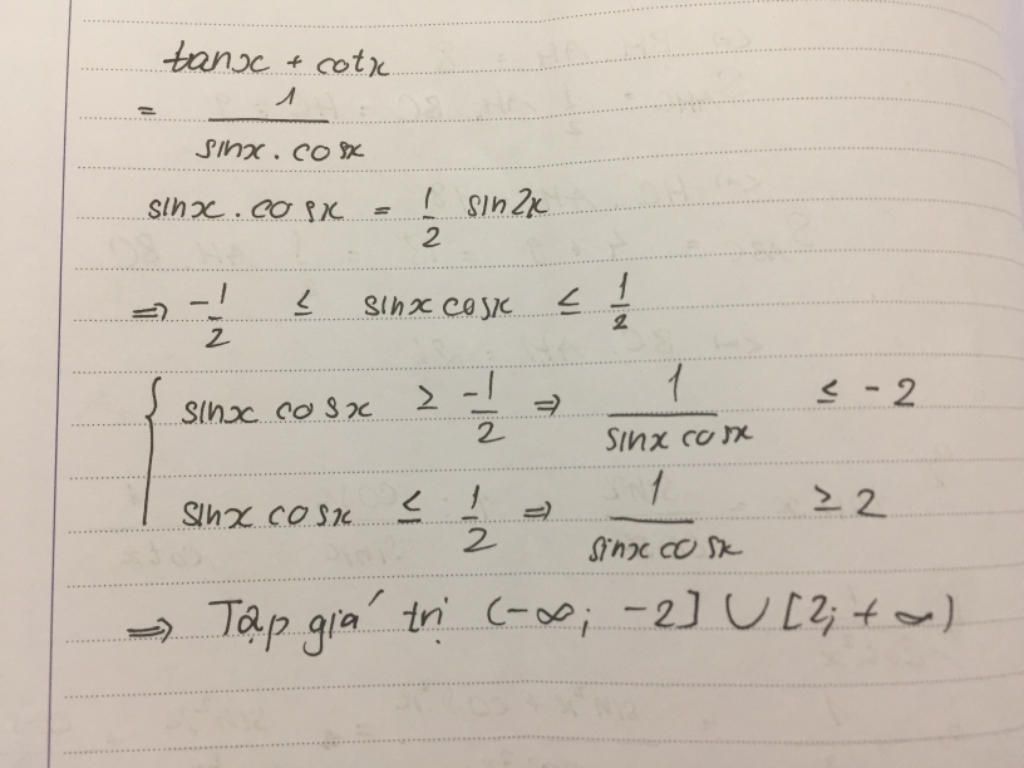 tanx + cotx
= 1/(sinx . cosx)
sinx . cosx = 1/2 sin2x
=> -1/2 ≤ sinx cosx ≤ 1/2
{ sinx cosx ≥ -1/2 => 1/(sinx cosx) ≤ -2
sinx cosx ≤ 1/2 => 1/(sinx cosx) ≥ 2
=> Tập giá trị (-∞; -2] ∪ [2; +∞)